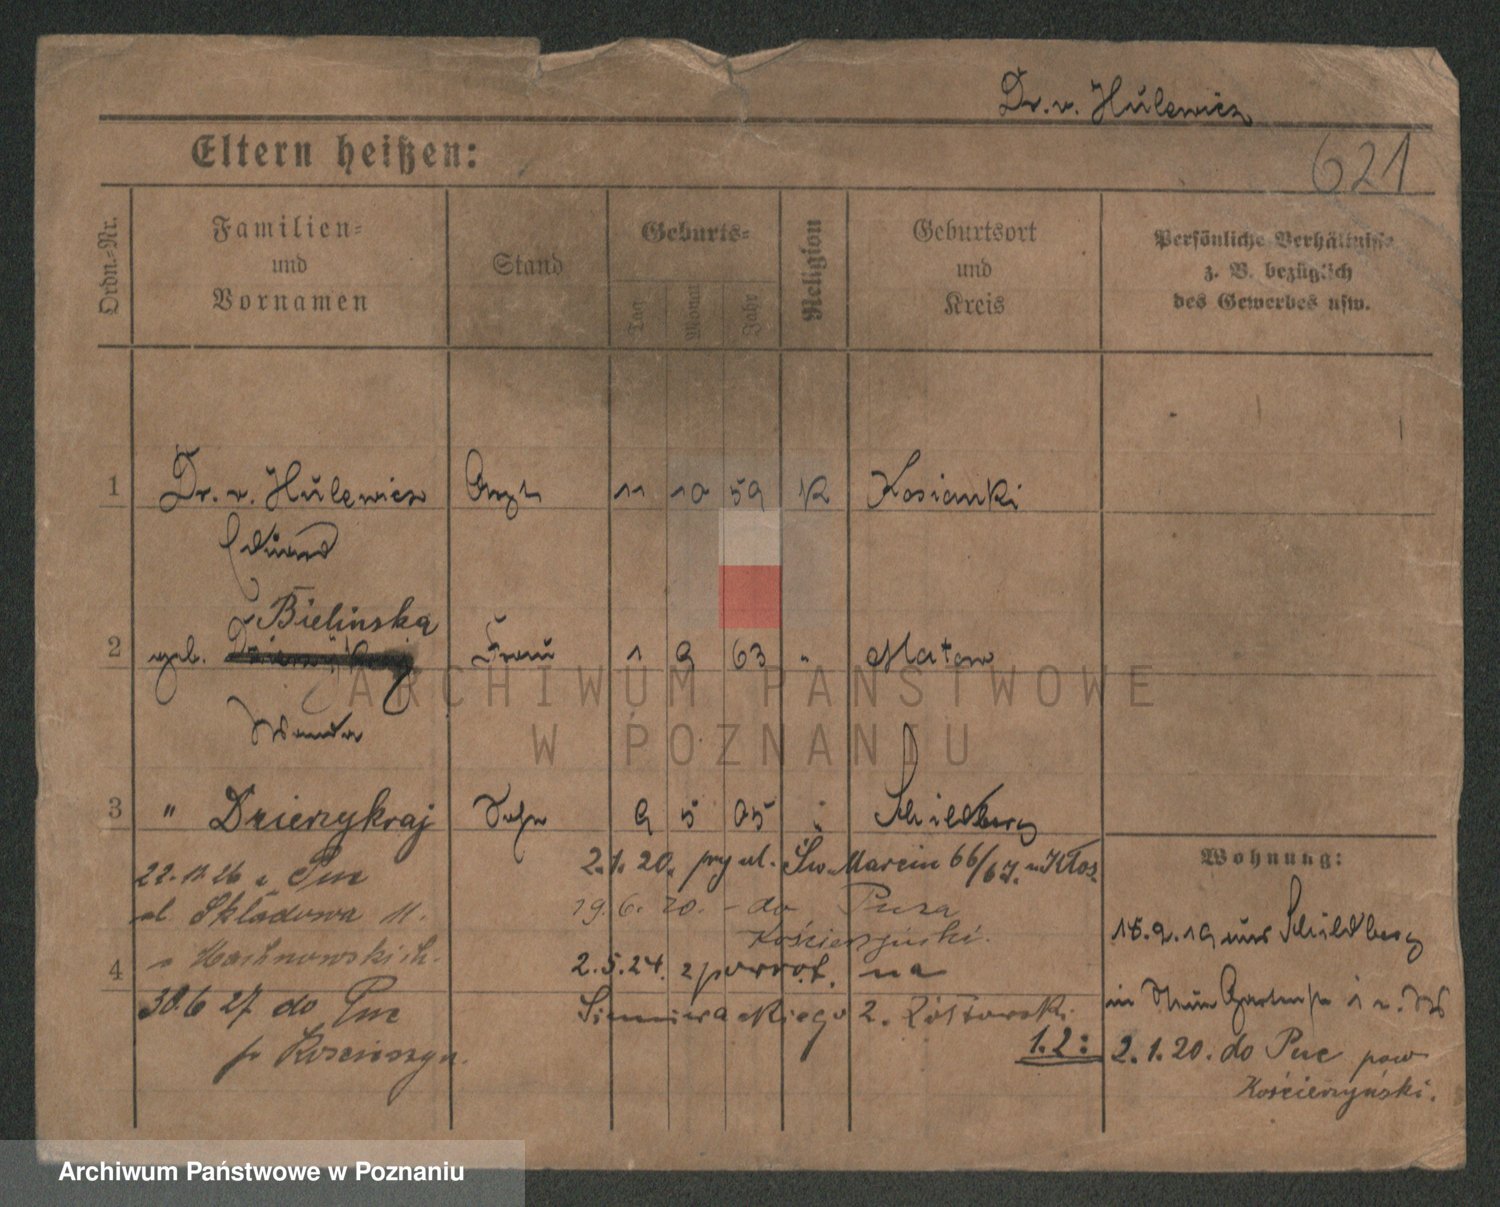 Dr. v. Hulewicz
621
Eltern heißen:
Ordn.-Nr.
Familien-
und
Vornamen
Stand
Geburts-
Tag
Monat
Jahr
Religion
Geburtsort
und
Kreis
Persönliche Verhältnisse
z. B. bezüglich
des Gewerbes usw.
1 Dr. v. Hulewicz Arzt 11 10 59 K Kosianki
Eduard
Bielinska
2 geb. Frau 1 9 63 "
Wanda
3 " Dzierzykraj Sohn 9 5 05 " Schildberg
22.11.26 z Puc
ul. Składowa 11.
4
30.6 27 do Puc
p. Kościerzyn.
2.1.20. przy ul. Św. Marcin 66/67.
19.6.20. - do Puca
Kościerzyński.
2.5.24. z powrot. na
Siemiradzkiego 2. Żółtowski
1.2:
Wohnung:
15.9.19 aus Schildberg
2.1.20. do Puc pow
Kościerzyński.
ARCHIWUM PAŃSTWOWE
W POZNANIU
Archiwum Państwowe w Poznaniu